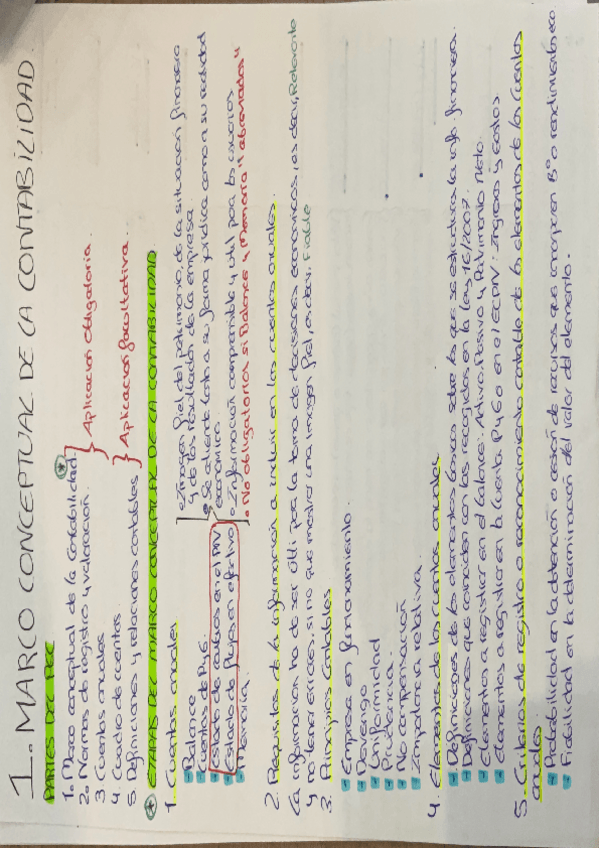 1. MARCO CONCEPTUAL DE LA CONTABILIDAD
PARTES DEL PGC
1. Marco conceptual de la contabilidad *
2. Normas de registro y valoración.
3. Cuentas anuales
Aplicación obligatoria.
4. Cuadro de cuentas.
5. Definiciones y relaciones contables
Aplicación facultativa.
* ETAPAS DEL MARCO CONCEPTUAL DE LA CONTABILIDAD
1. Cuentas anuales
Balance
Cuentas de PyG.
Estado de cambios en el PN
Estado de flujos en efectivo
Memoria.
• Imagen fiel del patrimonio, de la situación financiera
y de los resultados de la empresa.
• Se atiende tanto a su forma jurídica como a su realidad
económica.
• Información comprensible y útil para los usuarios.
• No obligatorios si Balance y Memoria "abreviados"
2. Requisitos de la información a incluir en las cuentas anuales.
La información ha de ser útil para la toma de decisiones económicas, es decir, Relevante
y no tener errores, si no que mostrar una imagen fiel, es decir, Fiable
3. Principios Contables
Empresa en funcionamiento.
Devengo
Uniformidad
Prudencia.
No compensación
Importancia relativa.
4. Elementos de las cuentas anuales
Definiciones de los elementos básicos sobre los que se estructura la info financiera.
Definiciones que coinciden con las recogidas en la Ley 16/2007.
Elementos a registrar en el Balance: Activo, Pasivo y Patrimonio Neto.
Elementos a registrar en la cuenta PyG o en el ECPN: Ingresos y Gastos
5. Criterios de registro o reconocimiento contable de los elementos de las cuentas
anuales
Probabilidad en la obtención o cesión de recursos que incorporen Bº o rendimiento eco
Fiabilidad en la determinación del valor del elemento.